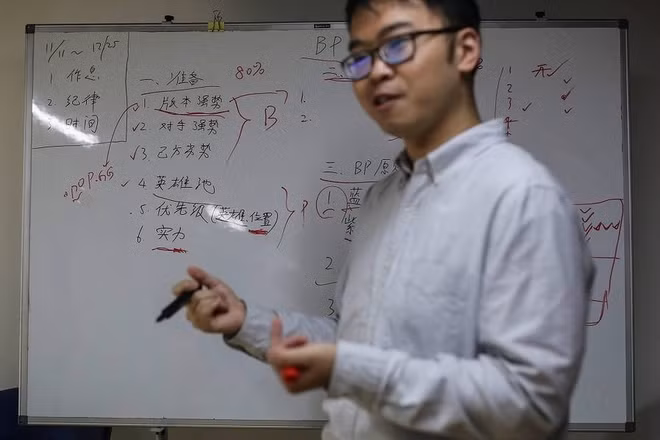 11/11 ~ 12/25
1 作息
2. 纪律
3 时间
OP.GG
一、准备 80%
1 版本强势
√2 对手强势
√3 乙方劣势
B
√ 4 英雄池
5 优先级(英雄,位置)
6 实力
P
BP
二、
1.
2.
三、BP原
① 蓝
紫
2
3.
1 开√
2 √
3 √ √
4